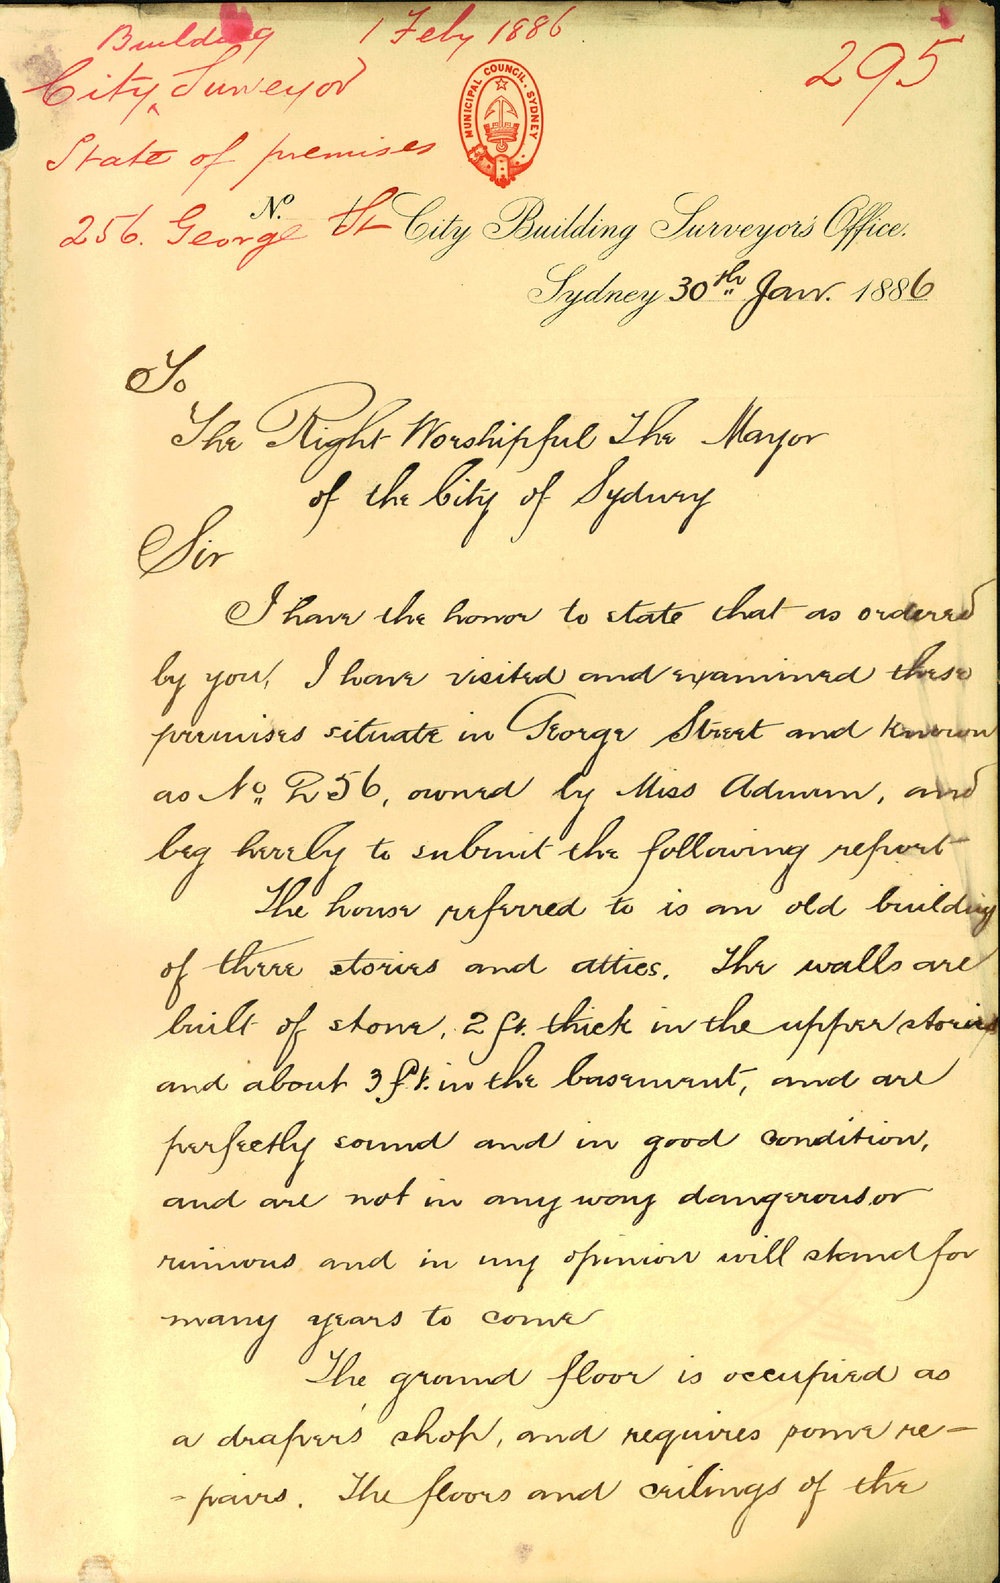 Building 1 Feby 1886
295
City Surveyor
MUNICIPAL COUNCIL. SYDNEY
State of premises
256. George St
No.
City Building Surveyor's Office.
Sydney 30th Jan. 1886
To
The Right Worshipful The Mayor
of the City of Sydney
Sir
I have the honor to state that as ordered
by you, I have visited and examined these
premises situate in George Street and known
as No. 256, owned by Miss, and
beg hereby to submit the following report
The house referred to is an old building
of three stories and attics. The walls are
built of stone, 2 ft. thick in the upper stories
and about 3 ft. in the basement, and are
perfectly sound and in good condition,
and are not in any way dangerous or
ruinous and in my opinion will stand for
many years to come
The ground floor is occupied as
a draper's shop, and requires some re-
-pairs. The floors and ceilings of the